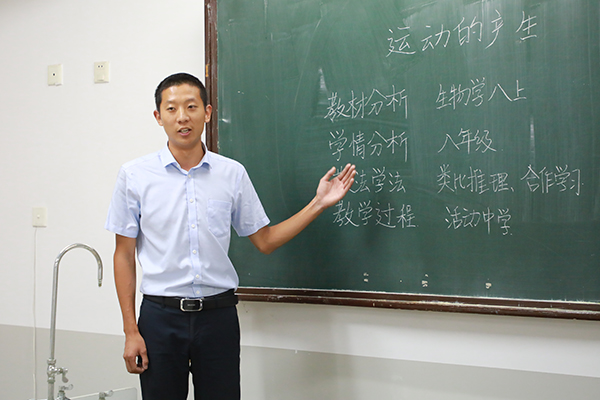 运动的产生
教材分析 生物学八上
学情分析 八年级
法学法 类比推理、合作学习
教学过程 活动中学